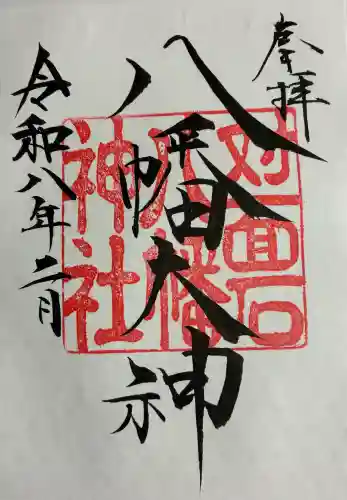 奉拝
八幡大神
令和八年二月
対面石
八幡
神社